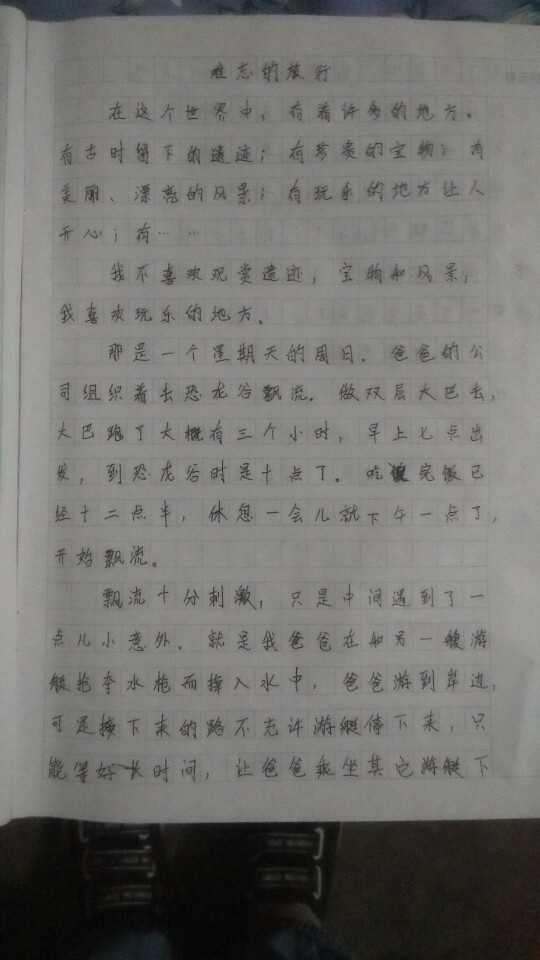 难忘的旅行
在这个世界中，有着许多的地方。
有古时留下的遗迹；有珍贵的宝物；有
美丽、漂亮的风景；有玩乐的地方让人
开心；有……
我不喜欢观赏遗迹，宝物和风景，
我喜欢玩乐的地方。
那是一个星期天的周日。爸爸的公
司组织着去恐龙谷飘流。做双层大巴去，
大巴跑了大概有三个小时，早上七点出
发，到恐龙谷时是十点了。吃完饭已
经十二点半，休息一会儿就下午一点了，
开始飘流。
飘流十分刺激，只是中间遇到了一
点儿小意外。就是我爸爸在和另一艘游
艇抢夺水枪而掉入水中，爸爸游到岸边，
可是接下来的路不允许游艇停下来，只
能等好长时间，让爸爸乘坐其它游艇下